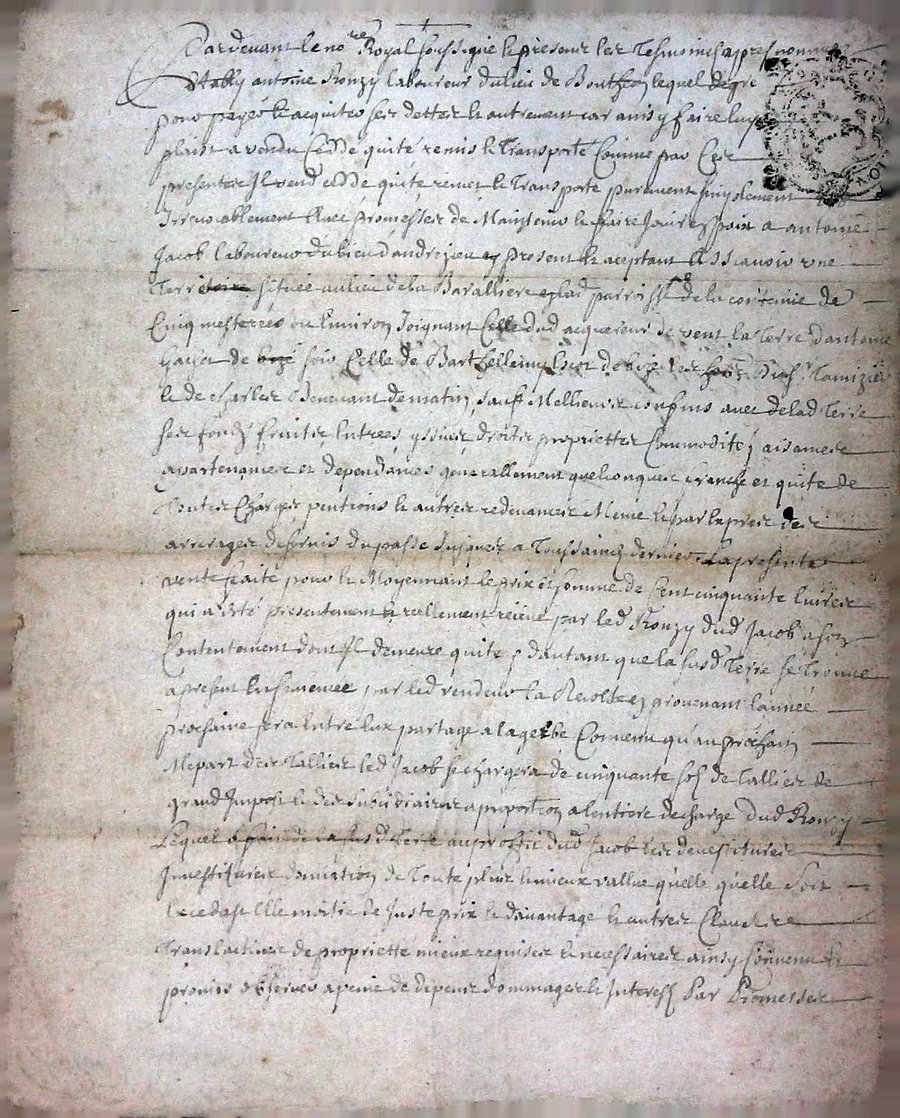 Pardevant le no.re Royal soussigné et present les Tesmoins apres nommés
Estably antoine Ronzy laboureur du lieu de Boutheon lequel de gre
pour payer et acquiter ses dettes et autrement car ainsy faire luy
plaist a vendu Cedde quité remis et Transporté Comme par Ces
presentes Il vend cedde quite remet et Transporte purement simplement
Irrevocablement avec promesses de Maintenir et faire Jouir a antoine
Jacob laboureur du lieu dandrezieu present et aceptant Assavoir une
Terre située au lieu de la Baralliere parroisse de la contenüe de
Cinq mesterées ou Environ Joignant Celle dud acquereur de vent la Terre dantoine
de soir Celle de Barthellemy de bize les Tamizier
et de Charles de matin sauf Meillieurs confins avec de lad Terre
ses fondz fruits Entrees yssües droits proprietes Commoditéz aisances
apartenances et dependances generallement quelconques franche et quite de
Toutes Charges pentions et autres redevances Meme Et par Expres des
arrerages de servis du passé Jusques a Toussainctz dernier La presente
vente faite pour et Moyennant le prix et somme de Cent cinquante livres
qui a esté presentement et reellement receüe par led Ronzy dud Jacob a son
Contentement dont Il demeure quite, dautant que la susd Terre se Trouve
a present Ensemencee par led vendeur La Recolte en provenant lannée
prochaine sera Entre Eux partagé a la gerbe Convenu qu'au prochain
Mepart des Tallies led Jacob se chargera de cinquante solz de Tallies de
grand Impost et des subsidiaires a proportion a lentiere decharge dud Ronzy
Lequel de la susd Terre au proffit dud Jacob les devestitures
Investitures donnation de Toute plus Et mieux vallue qu'elle qu'elle soit
Excedast Elle moitié de Juste prix et davantage Et autres Clauses
Translatives de propriette mieux requises Et necessaires ainsy Convenu Et
promis observer a peine de depens dommages et Interestz Par Promesses